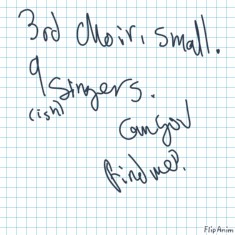 3rd Choir, small.
9 singers.
(ish)
Can you
find me?
FlipAnim